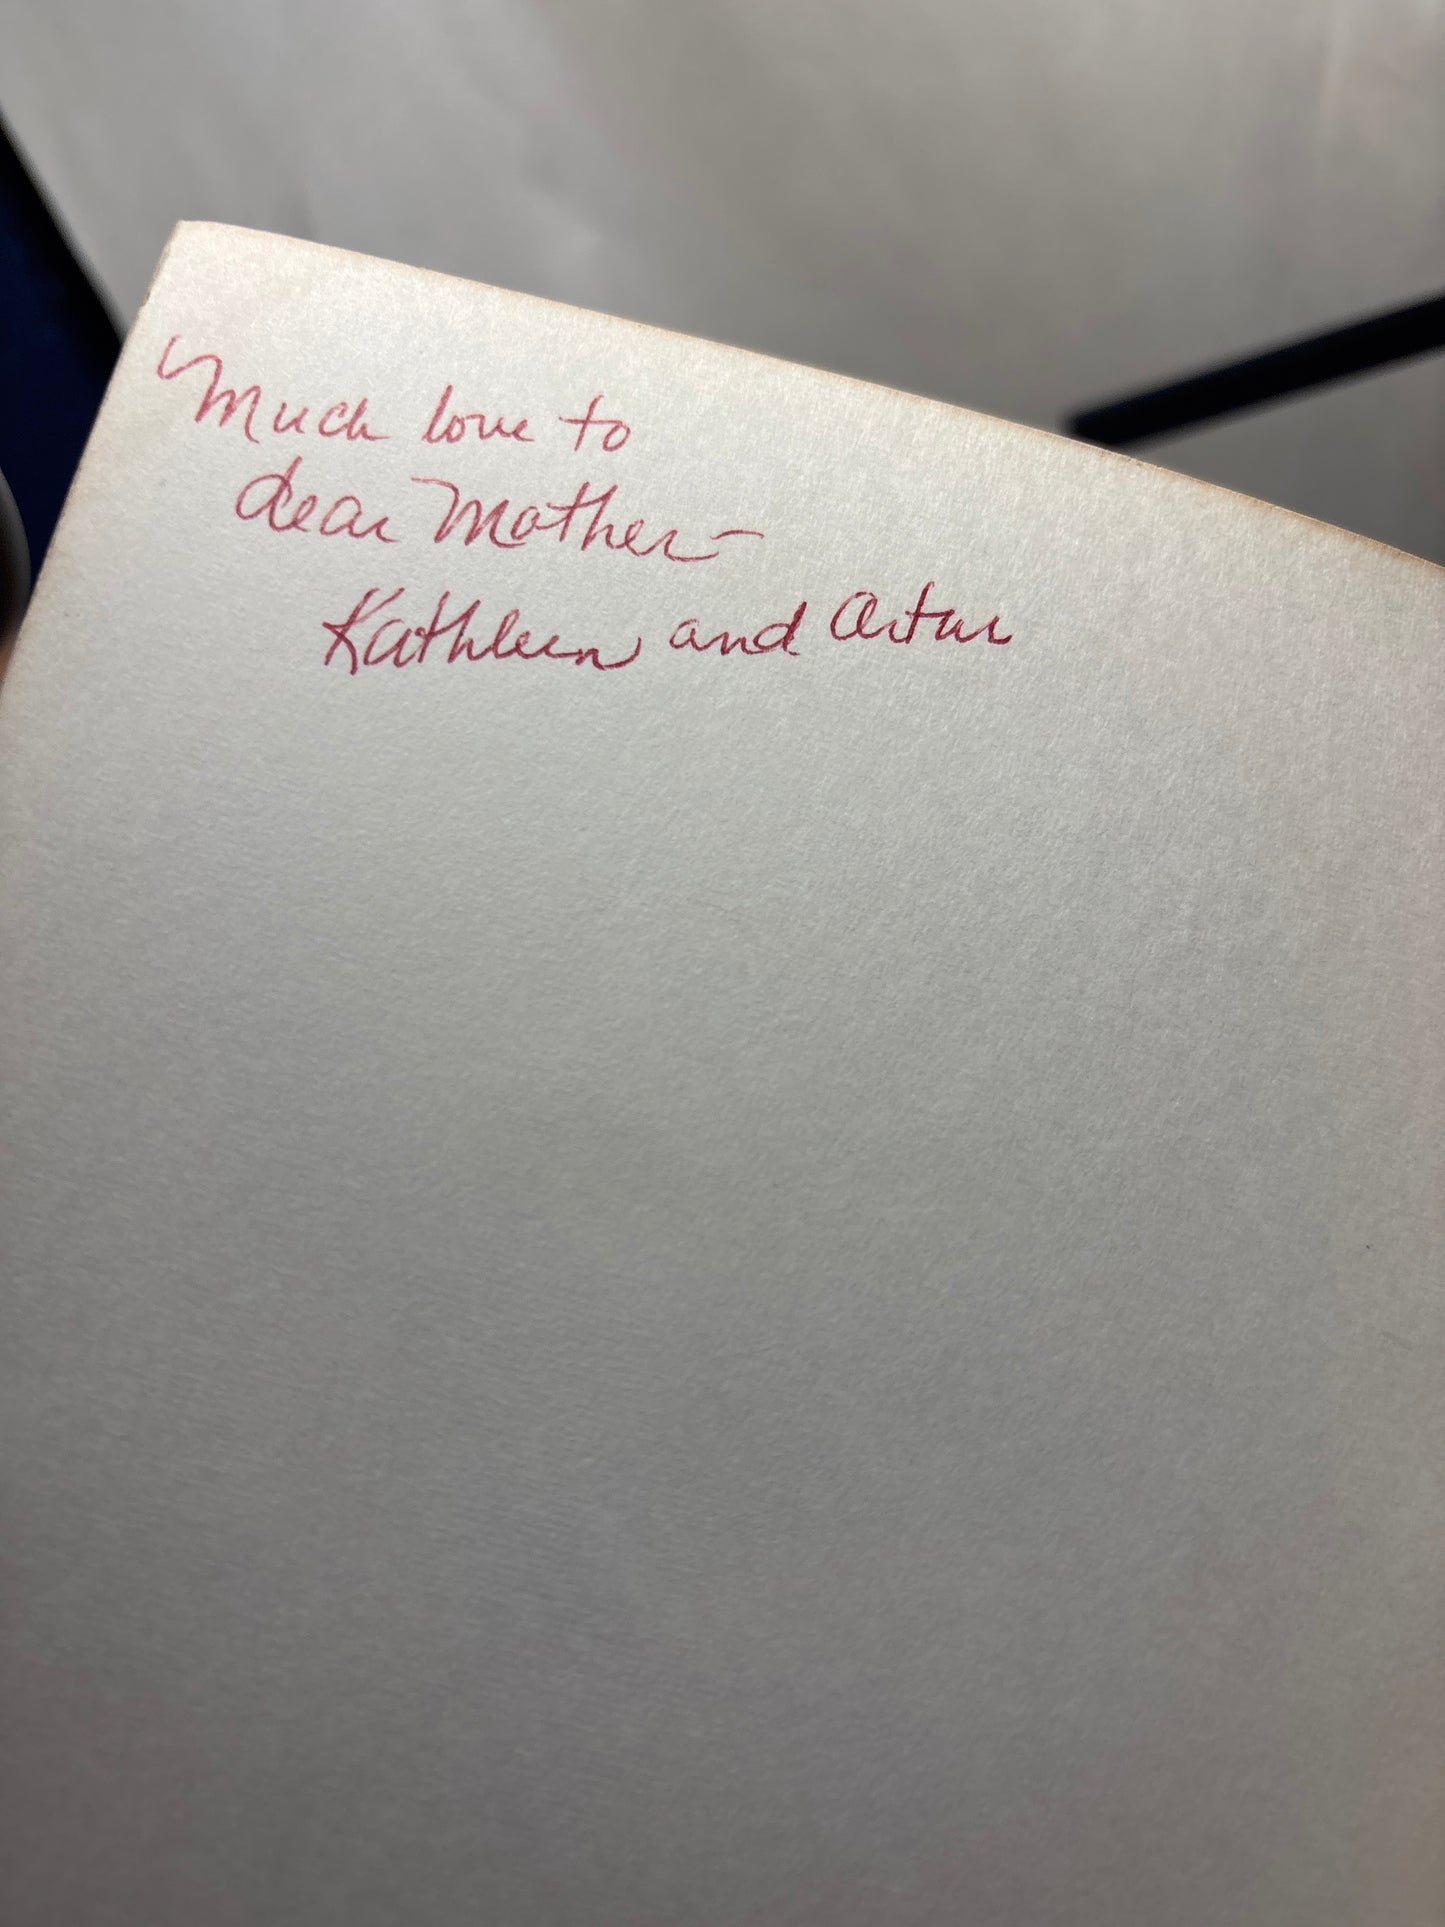 Much love to
dear Mother—
Kathleen and Artur